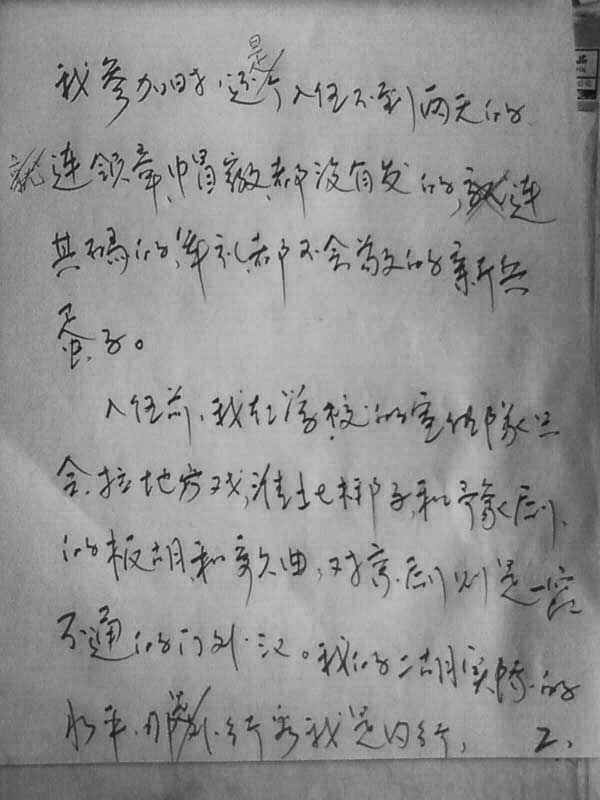 我参加时,还是个入伍不到两天的
就连领章、帽徽都没有发的,连
其码的军礼都不会敬的新兵
蛋子。
入伍前,我在学校的宣传队只
会拉地方戏,淮北梆子,和豫剧
的板胡和歌曲,对京剧则是一窍
不通的门外汉。我的二胡实际的
水平,那是外行看我是内行,
2、